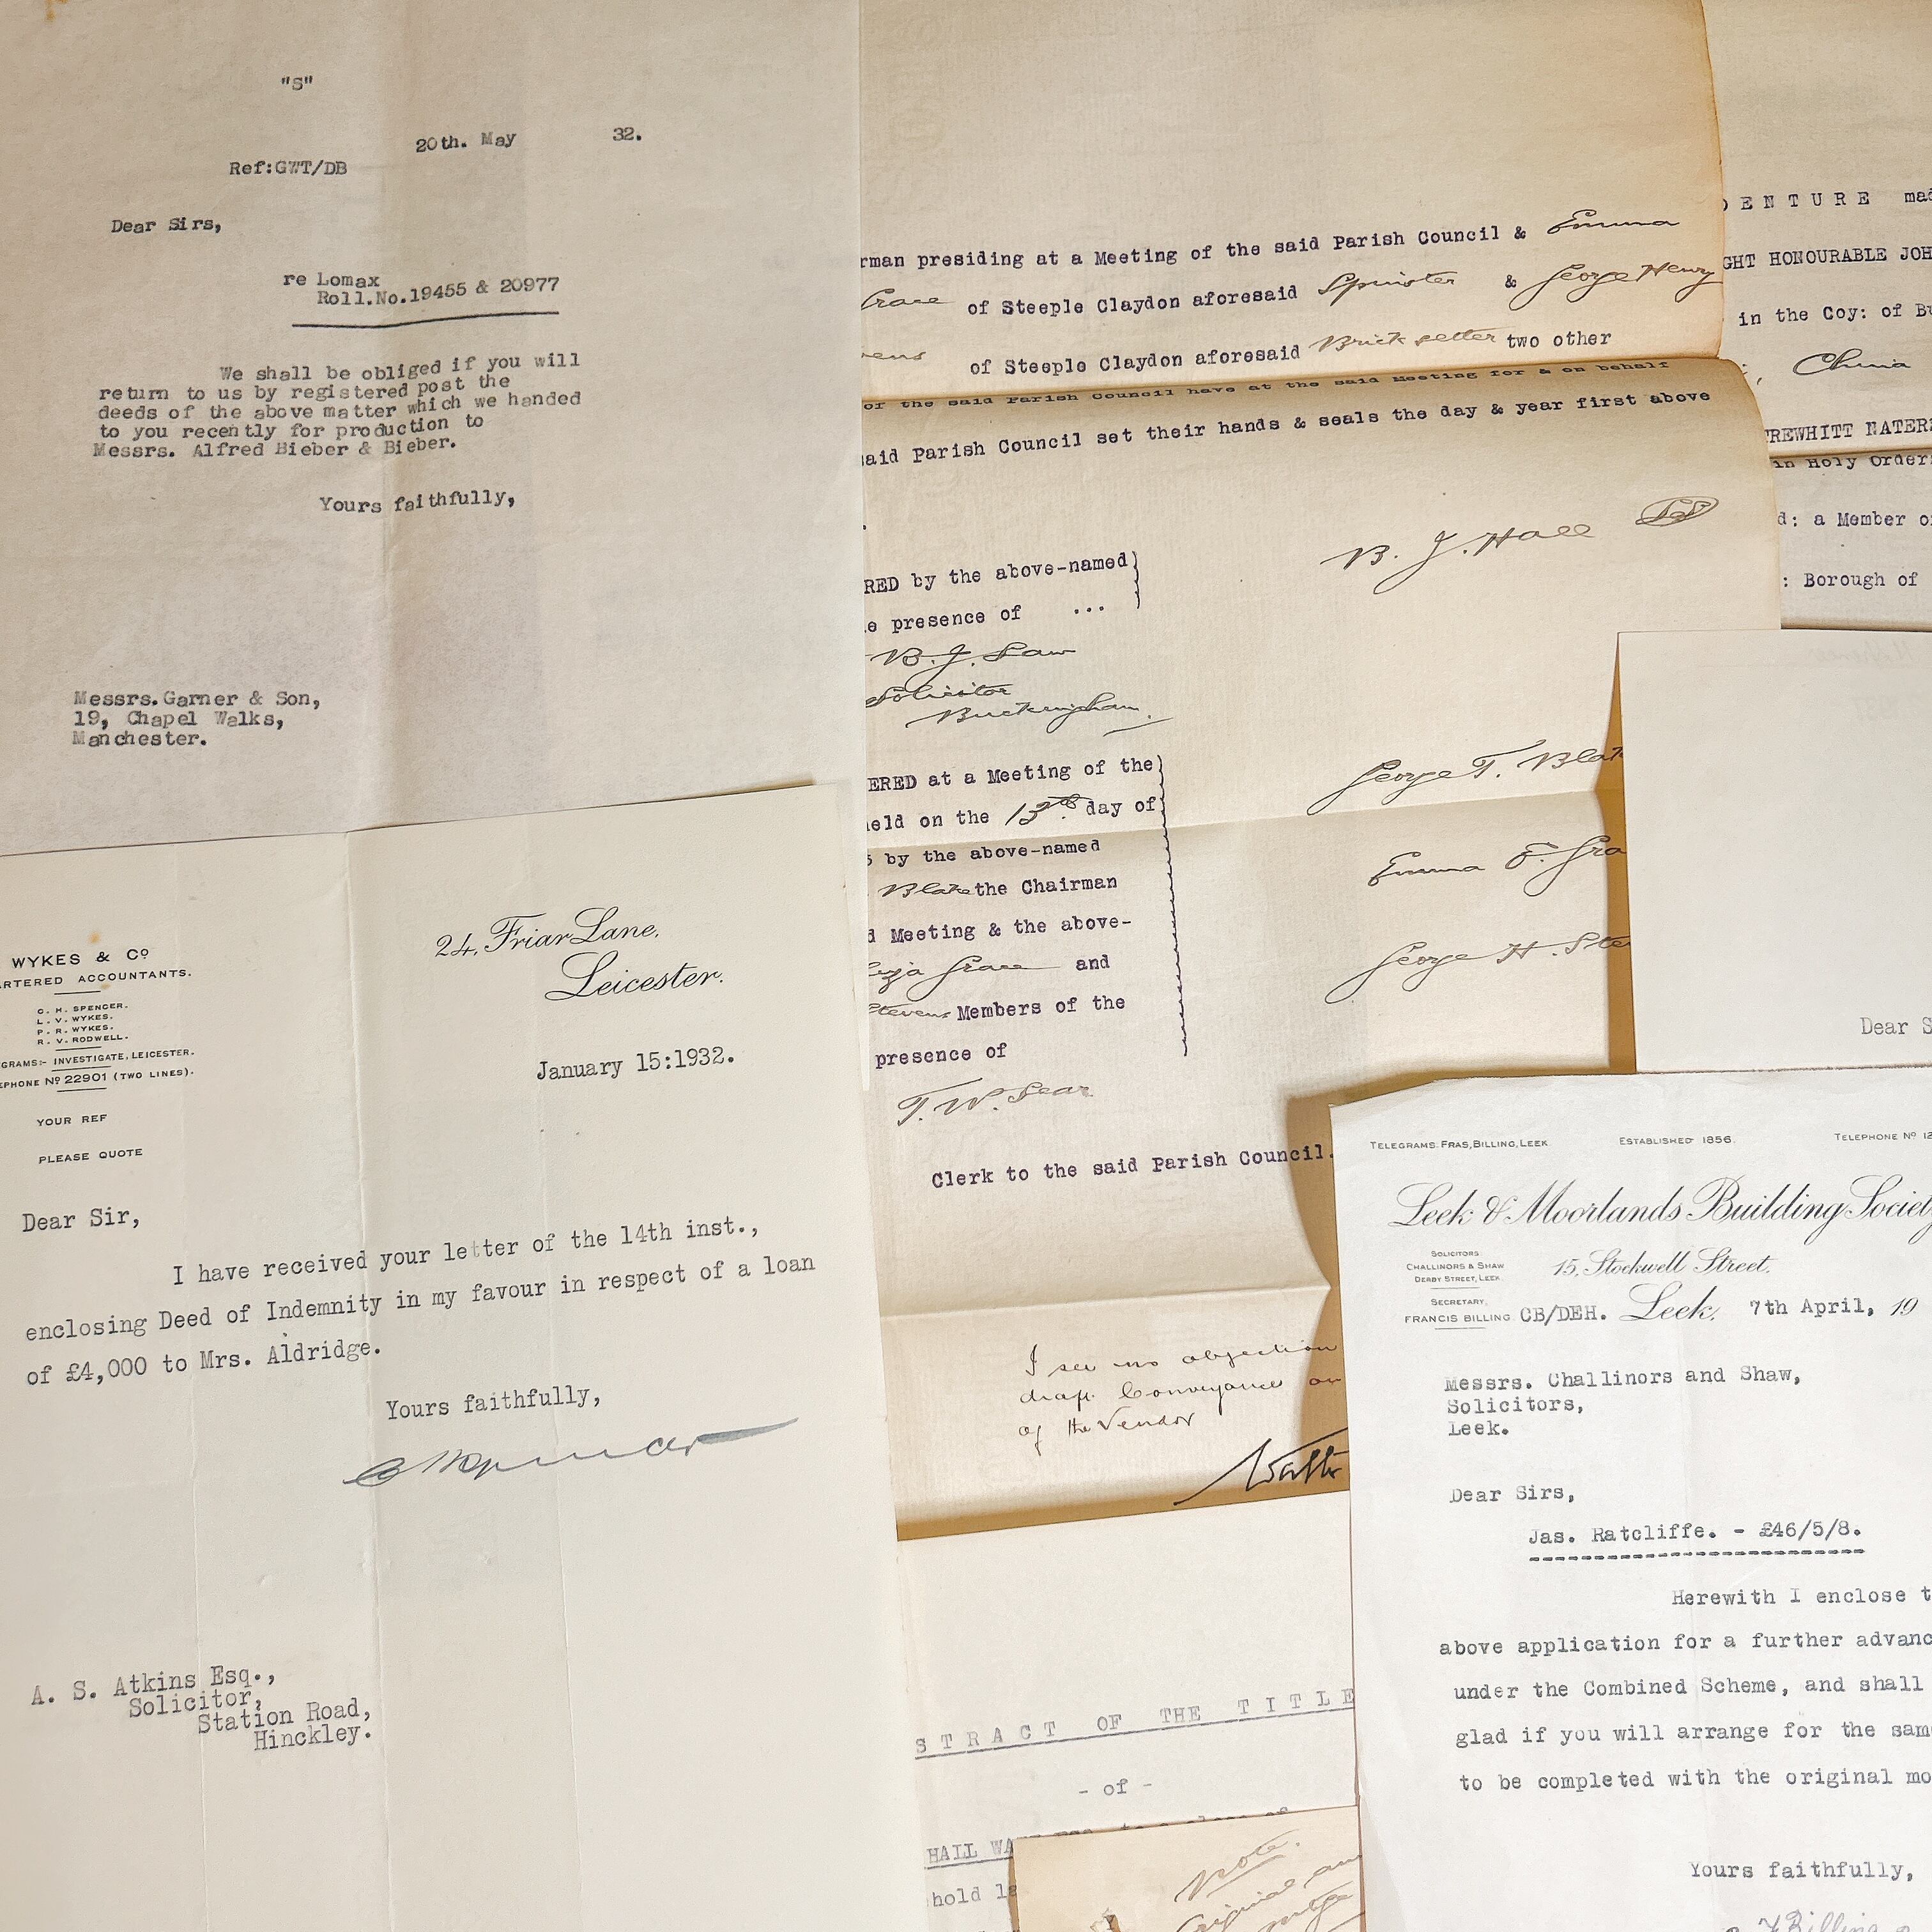 "S"
20th. May 32.
Ref:GWT/DB
Dear Sirs,
re Lomax
Roll.No.19455 & 20977
We shall be obliged if you will
return to us by registered post the
deeds of the above matter which we handed
to you recently for production to
Messrs. Alfred Bieber & Bieber.
Yours faithfully,
Messrs.Garner & Son,
19, Chapel Walks,
Manchester.
WYKES & Co
RTERED ACCOUNTANTS.
C. H. SPENCER.
L. V. WYKES.
P. R. WYKES.
R. V. RODWELL.
GRAMS:- INVESTIGATE, LEICESTER.
EPHONE No 22901 (TWO LINES).
YOUR REF
PLEASE QUOTE
24, Friar Lane,
Leicester.
January 15:1932.
Dear Sir,
I have received your letter of the 14th inst.,
enclosing Deed of Indemnity in my favour in respect of a loan
of £4,000 to Mrs. Aldridge.
Yours faithfully,
A. S. Atkins Esq.,
Solicitor,
Station Road,
Hinckley.
rman presiding at a Meeting of the said Parish Council & Emma
Grace of Steeple Claydon aforesaid Spinster & George Henry
vens of Steeple Claydon aforesaid Brick setter two other
of the said Parish Council have at the said Meeting for & on behalf
said Parish Council set their hands & seals the day & year first above
RED by the above-named
e presence of ...
B. J. Hall
B. J. Law
Solicitor
Buckingham.
ERED at a Meeting of the
held on the 13th day of
5 by the above-named
Blake the Chairman
d Meeting & the above-
Grace and
Stevens Members of the
presence of
George T. Blak
Emma E. Gra
George H. Ste
T. W. Sear
Clerk to the said Parish Council.
I see no objection
draft Conveyance on
of the Vendor
DENTURE mad
GHT HONOURABLE JOH
in the Coy: of Bu
China
TREWHITT NATER
in Holy Order
d: a Member o
: Borough of
Dear S
TELEGRAMS: FRAS, BILLING, LEEK. ESTABLISHED 1856. TELEPHONE No 12
Leek & Moorlands Building Societ
SOLICITORS:
CHALLINORS & SHAW
DERBY STREET, LEEK.
15, Stockwell Street,
SECRETARY,
FRANCIS BILLING
CB/DEH. Leek, 7th April, 19
Messrs. Challinors and Shaw,
Solicitors,
Leek.
Dear Sirs,
Jas. Ratcliffe. - £46/5/8.
Herewith I enclose t
above application for a further advanc
under the Combined Scheme, and shall
glad if you will arrange for the sam
to be completed with the original mo
Yours faithfully,
Billing
STRACT OF THE TITLE
- of -
HALL WA
hold le
Note.
Original an